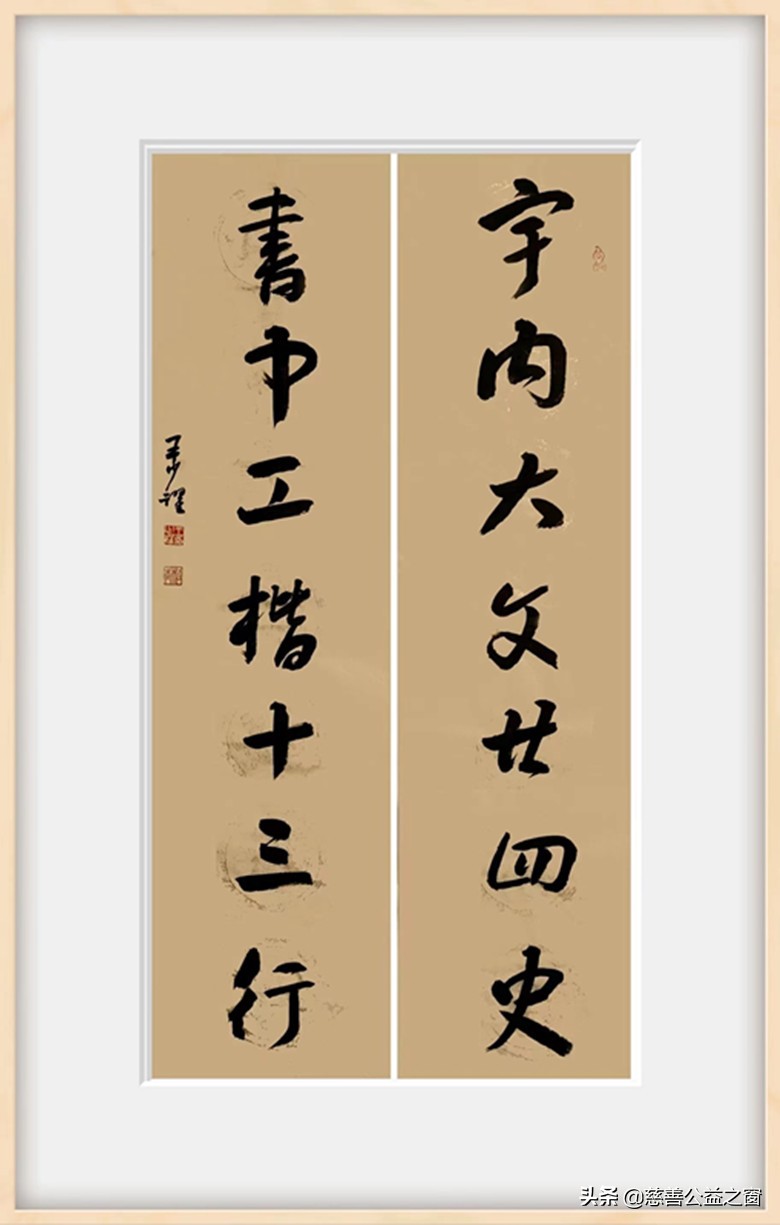 宇内大文廿四史
書中工楷十三行
头条 @慈善公益之窗